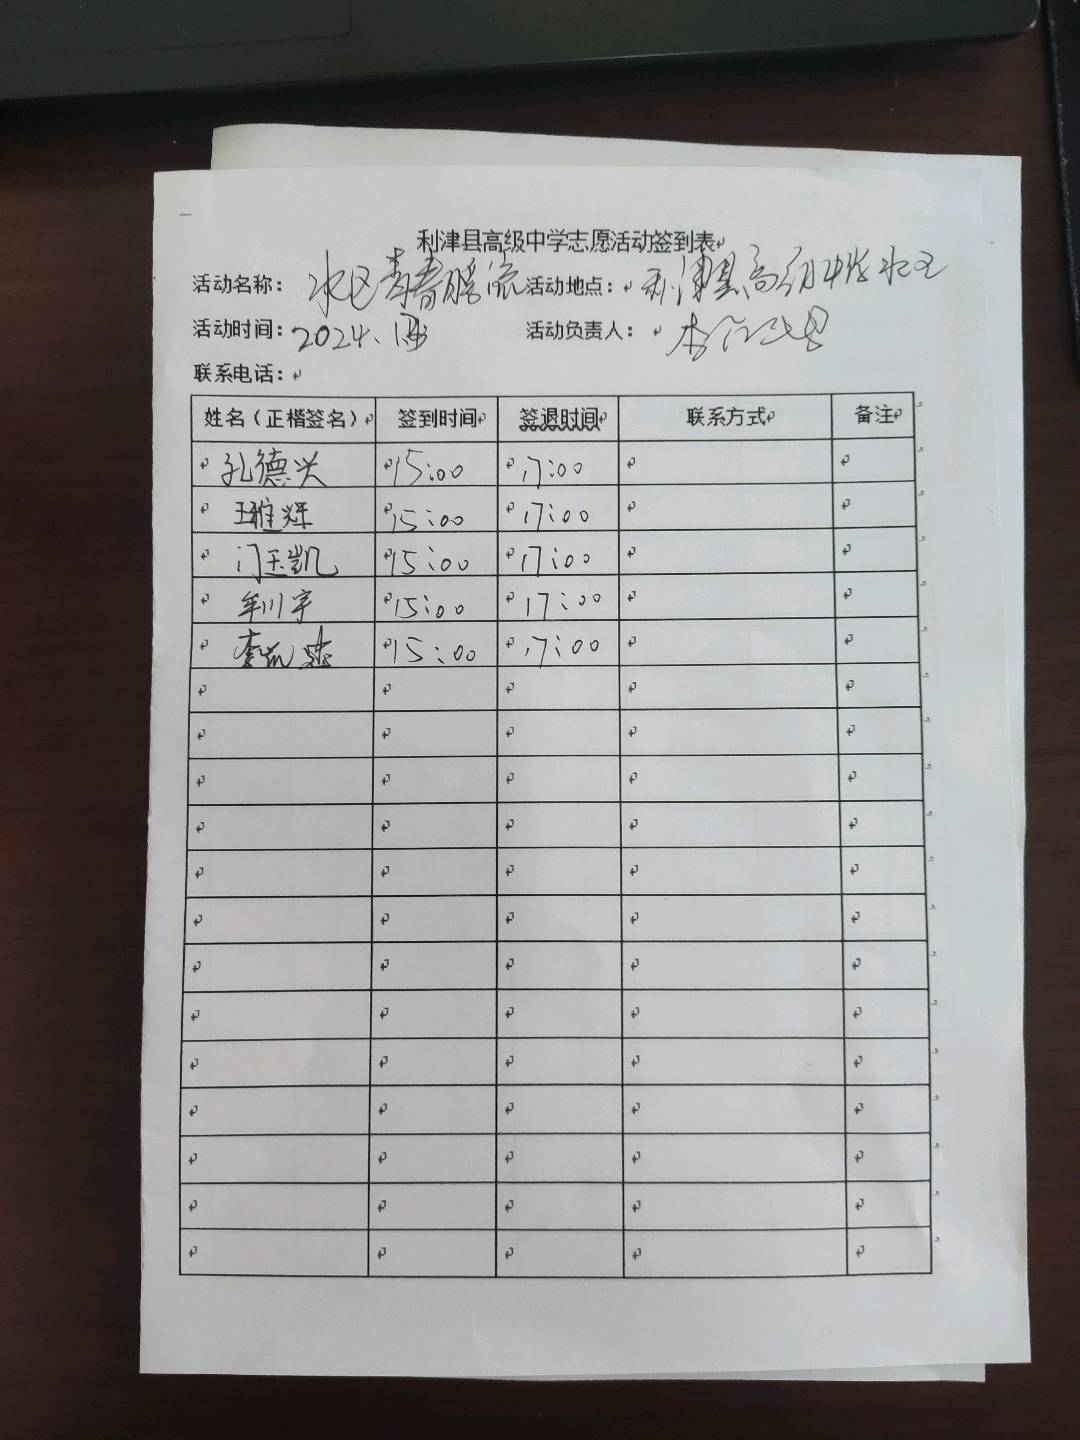 利津县高级中学志愿活动签到表
活动名称： 水区青春暖流 活动地点： 利津县高级中学水区
活动时间： 2024. 活动负责人：
联系电话：
姓名（正楷签名） 签到时间 签退时间 联系方式 备注
孔德兴 15:00 17:00
王雅烁 15:00 17:00
门玉凯 15:00 17:00
牟川宇 15:00 17:00
15:00 17:00